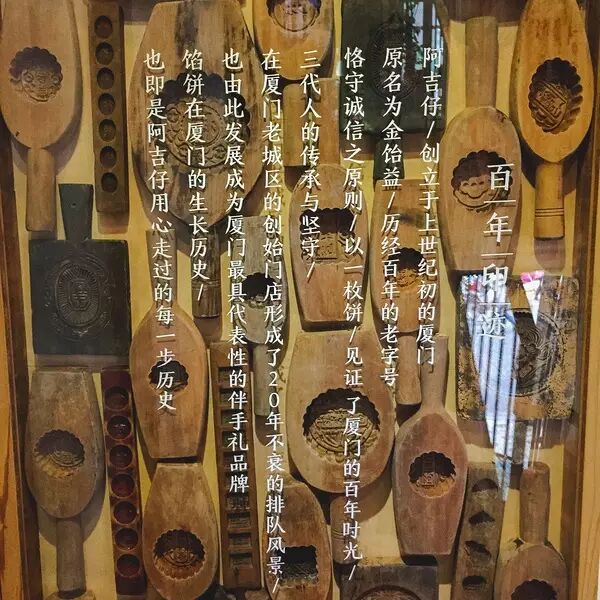 百年印迹
阿吉仔/创立于上世纪初的厦门
原名为金饴益/历经百年的老字号
恪守诚信之原则/以一枚饼/见证了厦门的百年时光/
三代人的传承与坚守/
在厦门老城区的创始门店形成了20年不衰的排队风景/
也由此发展成为厦门最具代表性的伴手礼品牌
馅饼在厦门的生长历史/
也即是阿吉仔用心走过的每一步历史